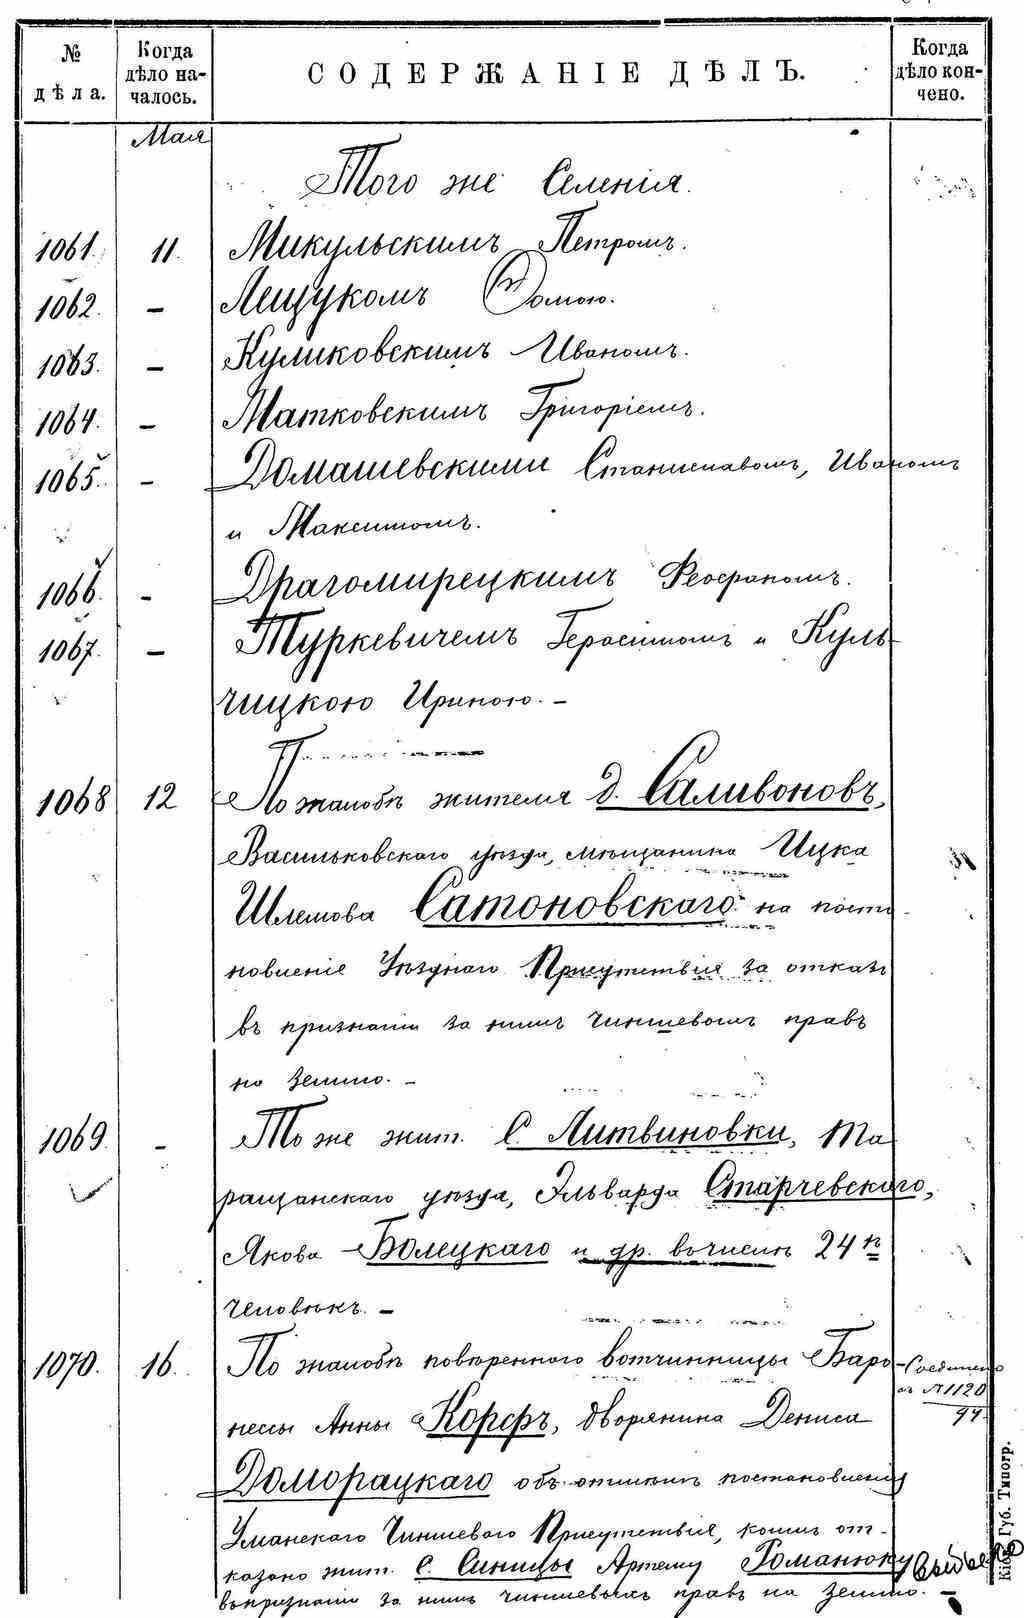 № дѣла.
Когда дѣло началось.
СОДЕРЖАНІЕ ДѢЛЪ.
Когда дѣло кончено.
Мая
Того же Селенія.
1061. 11. Микульскимъ Петромъ.
1062. – Лещукомъ Фомою.
1063. – Куликовскимъ Иваномъ.
1064. – Матковскимъ Григоріемъ.
1065. – Домашевскими Станиславомъ, Иваномъ
и Максимомъ.
1066. – Драгомирецкимъ Феофаномъ.
1067. – Туркевичемъ Герасимомъ и Куль-
чицкою Ириною. –
1068 12 По жалобѣ жителя д. Саливоновъ,
Васильковскаго уѣзда, мѣщанина Ицка
Шлемова Сатоновскаго на поста-
новленіе Уѣзднаго Присутствія за отказъ
въ признаніи за нимъ чиншевыхъ правъ
на землю. –
1069. – То же жит. с. Литвиновки, Та
ращанскаго уѣзда, Эдьварда Старчевскаго,
Якова Болецкаго и др. въ числѣ 24 х
человѣкъ. –
1070. 16. По жалобѣ повѣреннаго вотчинницы Баро-
Соединено
съ №1120
94.
нессы Анны Корфъ, дворянина Дениса
Доморацкаго объ отмѣнѣ постановленія
Уманскаго Чиншеваго Присутствія, коимъ от-
казано жит. с. Синицы Артему Романюку
въ признаніи за нимъ чиншевыхъ правъ на землю. –
Кіев. Губ. Типогр.